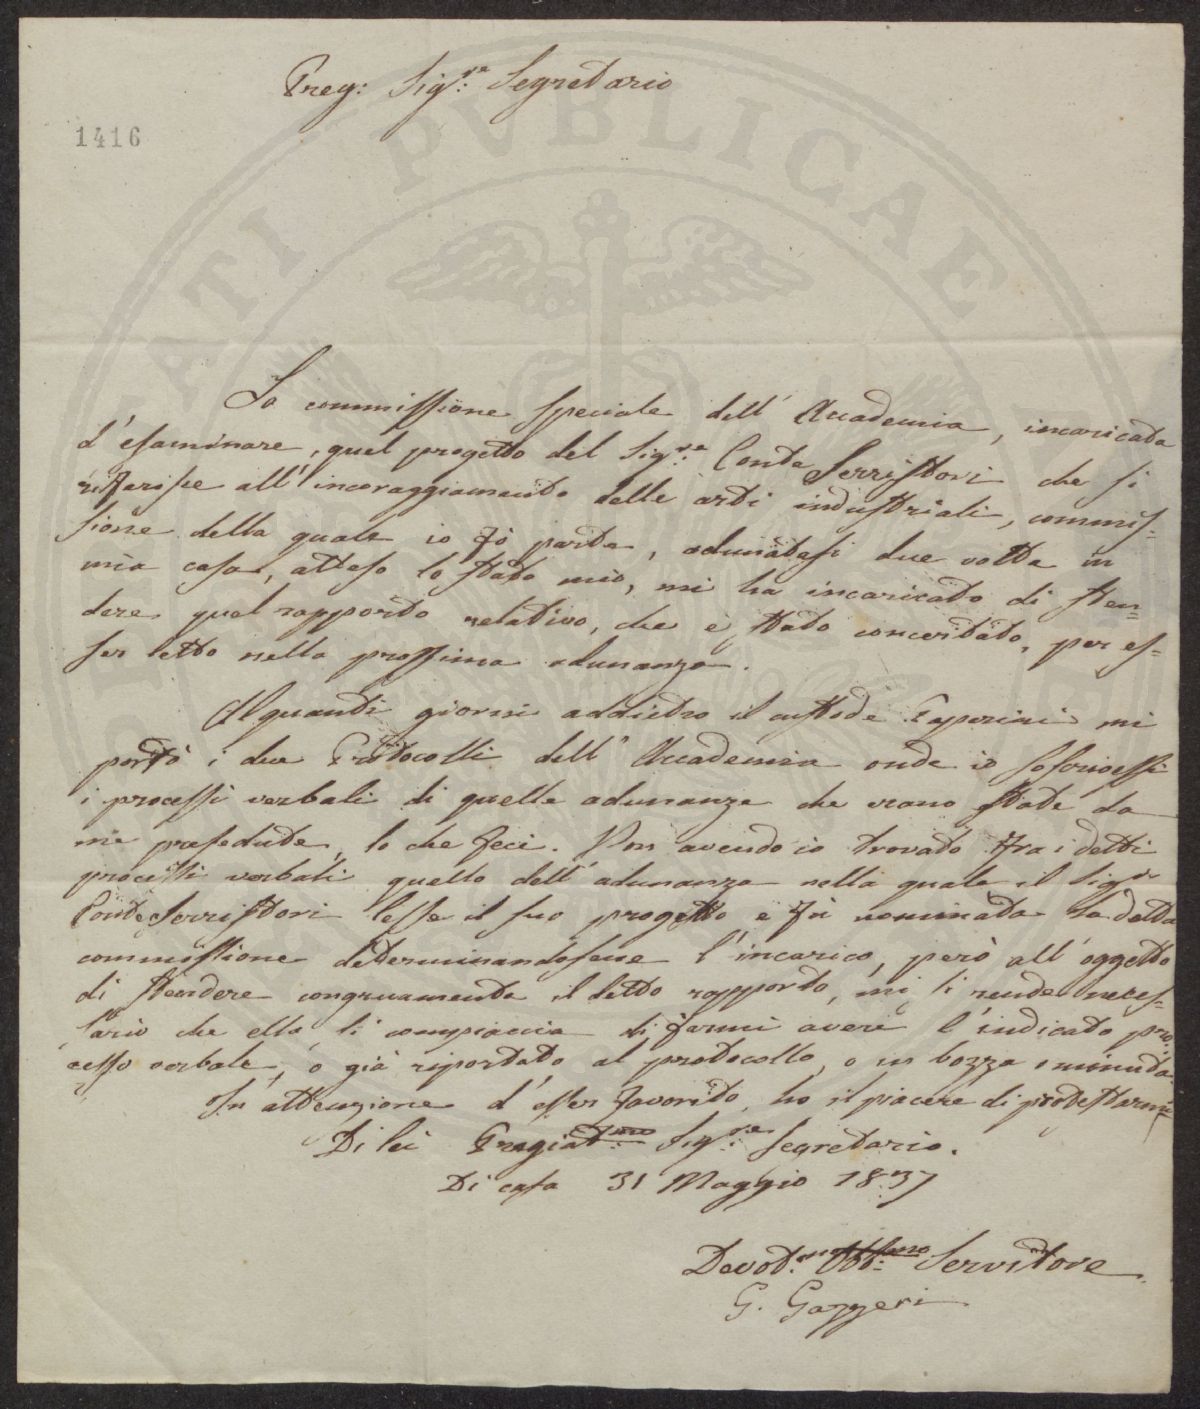 Preg: Sig.re Segretario
1416
La commissione speciale dell' Accademia, incaricata
d'esaminare, quel progetto del Sig.re Conte Serristori che si
riferisce all' incoraggiamento delle arti industriali, commis=
sione della quale io fò parte, adunatasi due volte in
mia casa, atteso lo stato mio, mi ha incaricato di sten=
dere quel rapporto relativo, che è stato concertato, per es=
ser letto nella prossima adunanza.
Alquanti giorni addietro il custode Paperini mi
portò i due Protocolli dell' Accademia onde io soscrivessi
i processi verbali di quelle adunanze che erano state da
me presedute, lo che feci. Non avendo io trovato tra i detti
processi verbali quello dell' adunanza nella quale il Sig.r
Conte Serristori lesse il suo progetto e fù nominata la detta
commissione determinandosene l'incarico, però all' oggetto
di stendere congruamente il detto rapporto, mi si rende neces=
sario che ella si compiaccia di farmi avere l'indicato pro=
cesso verbale, o già riportato al protocollo, o in bozza o minuta.
In attenzione d'esser favorito, ho il piacere di protestarmi
Di lei Pregiat.mo Sig.re Segretario.
Di casa 31 Maggio 1837
Devot.mo Obb.mo Servitore
G. Gazzeri
PVBLICAE